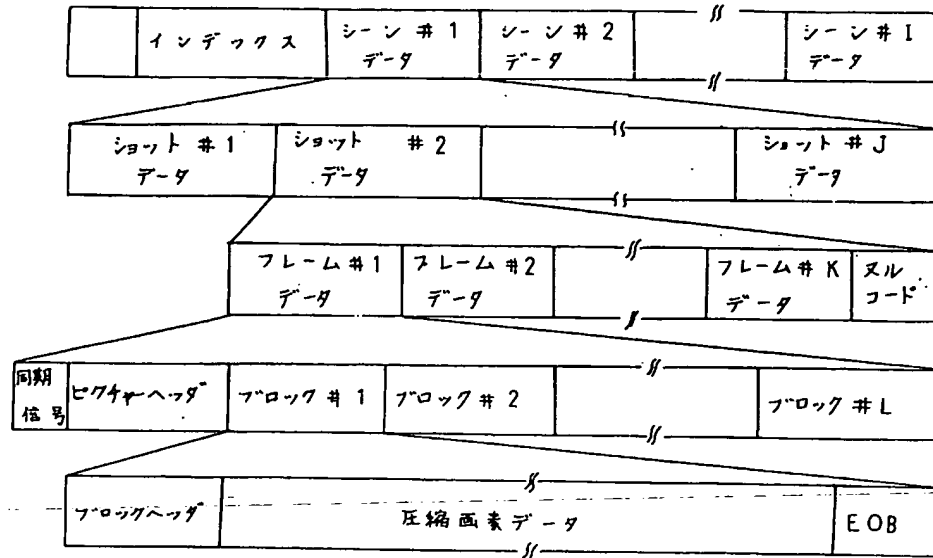 インデックス
シーン#1
データ
シーン#2
データ
シーン#I
データ
ショット #1
データ
ショット #2
データ
ショット#J
データ
フレーム#1
データ
フレーム#2
データ
フレーム#K
データ
ヌル
コード
同期
信号
ピクチャーヘッダ
ブロック#1
ブロック#2
ブロック#L
ブロックヘッダ
圧縮画素データ
EOB